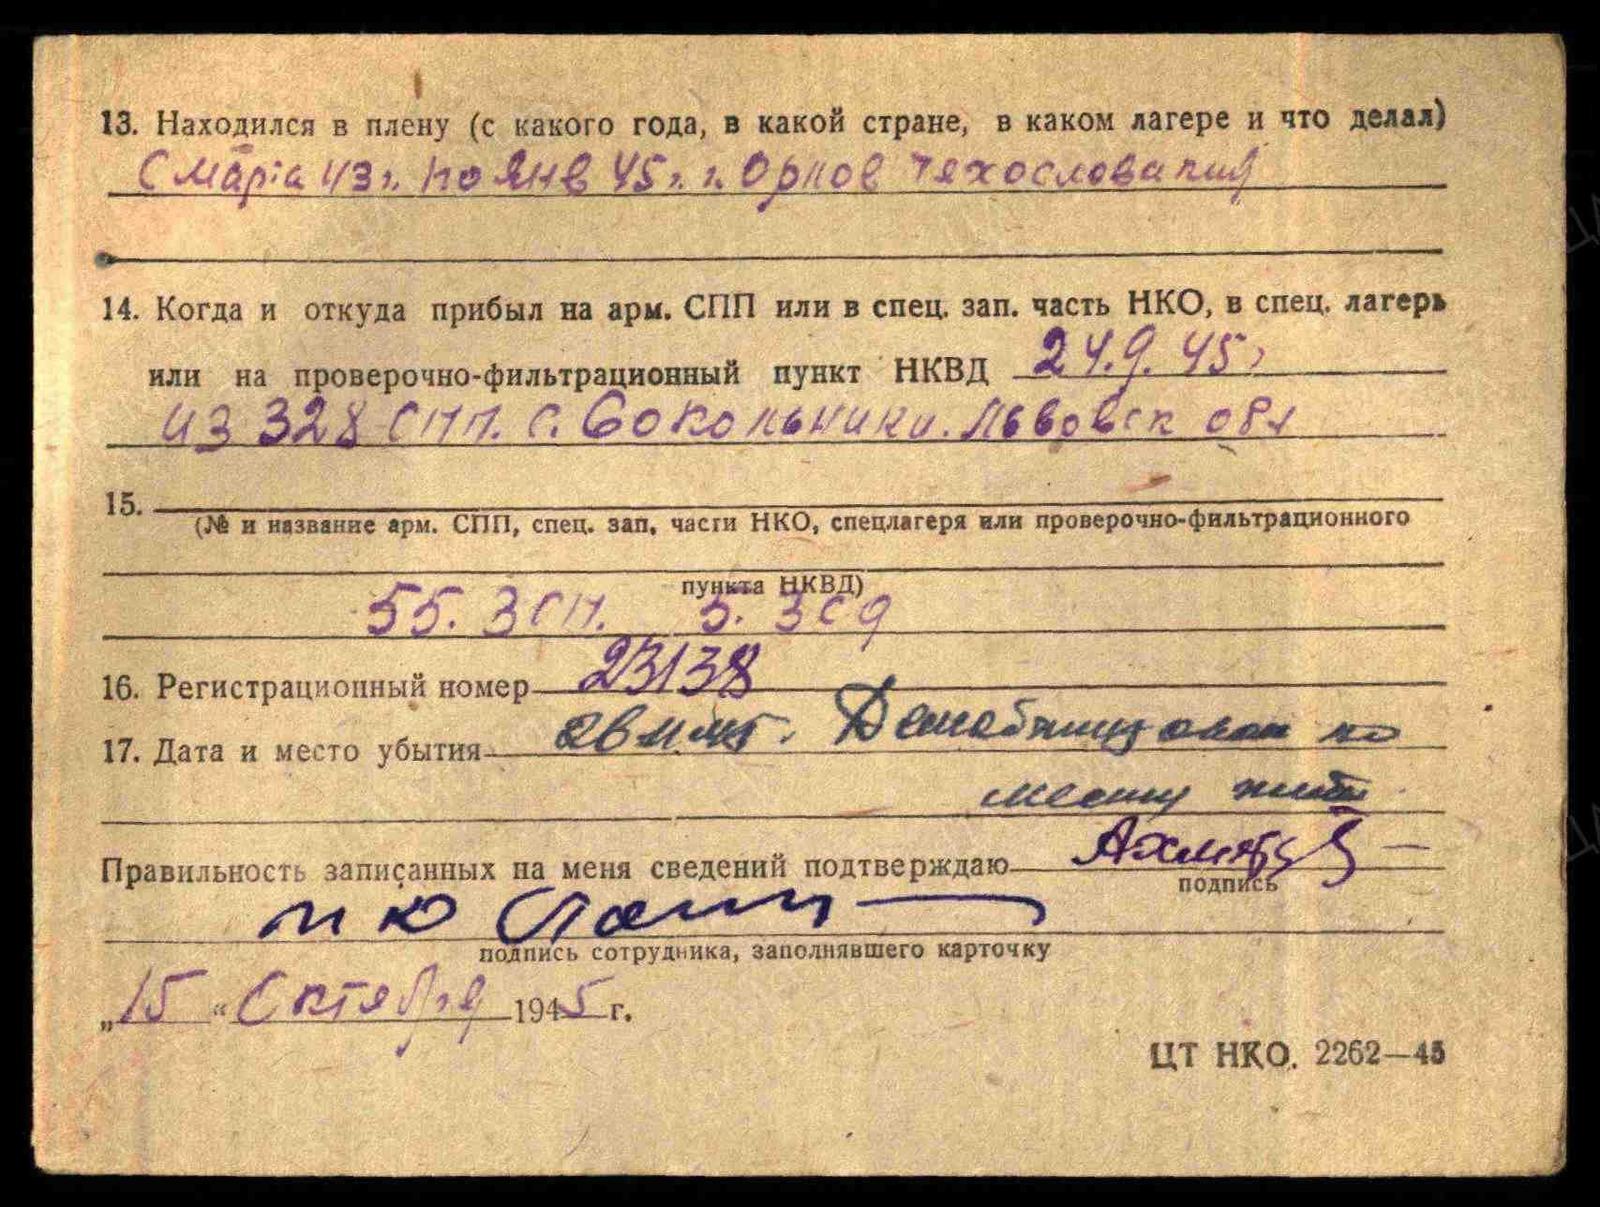 13. Находился в плену (с какого года, в какой стране, в каком лагере и что делал)
С марта 43 г. по янв 45 г. г. Орлов Чехословакия
14. Когда и откуда прибыл на арм. СПП или в спец. зап. часть НКО, в спец. лагерь
или на проверочно-фильтрационный пункт НКВД 24.9.45 г
из 328 СПП. с. Сокольники. Львовск обл
15.
(№ и название арм. СПП, спец. зап. части НКО, спецлагеря или проверочно-фильтрационного
пункта НКВД)
55. ЗСП. 5. ЗСД
16. Регистрационный номер 23138
17. Дата и место убытия Демобилизован по
месту жит
Правильность записанных на меня сведений подтверждаю
подпись
подпись сотрудника, заполнявшего карточку
„15" Октября 1945 г.
ЦТ НКО. 2262—45